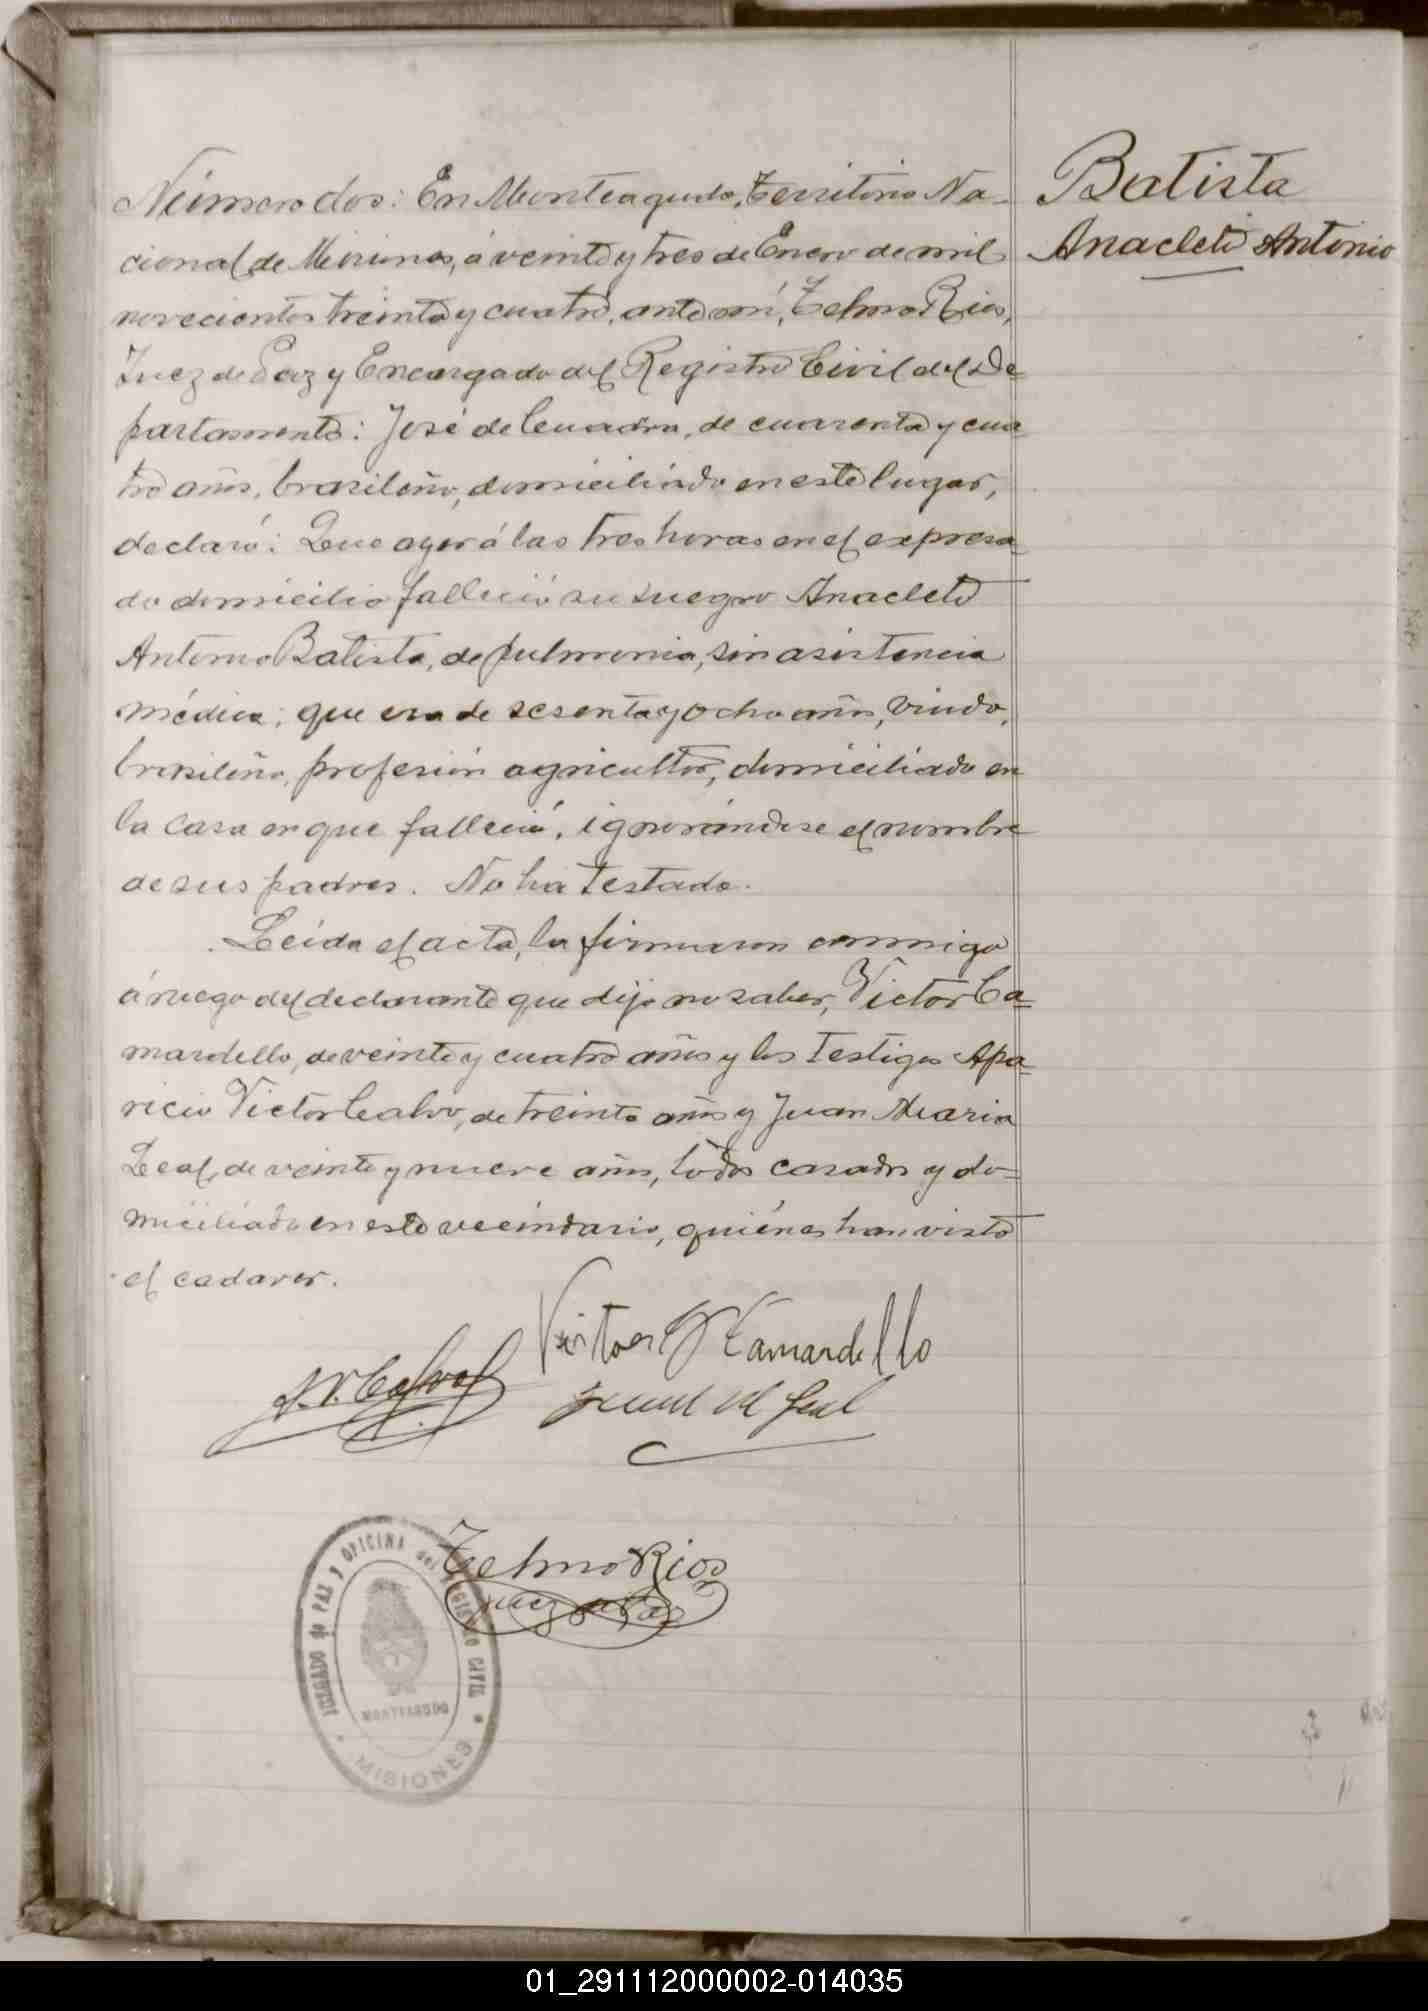 Número dos: En Monteagudo, Territorio Na-
cional de Misiones, á veinte y tres de Enero de mil
novecientos treinta y cuatro, ante mí, Telmo Rios,
Juez de Paz y Encargado del Registro Civil del De-
partamento: José de Cuadra, de cuarenta y cua-
tro años, brasileño, domiciliado en este lugar,
declaró: Que ayer á las tres horas en el expresa-
do domicilio falleció su suegro Anacleto
Antonio Batista, de pulmonia, sin asistencia
médica; que era de sesenta y ocho años, viudo,
brasileño, profesión agricultor, domiciliado en
la casa en que falleció, ignorándose el nombre
de sus padres. No ha testado.
Leída el acta, la firmaron conmigo
á ruego del declarante que dijo no saber, Victor Ca-
mardello, de veinte y cuatro años y los testigos Apa-
ricio Victor Calvo, de treinta años y Juan Maria
Leal, de veinte y nueve años, todos casados y do-
miciliados en este vecindario, quiénes han visto
el cadaver.
Batista
Anacleto Antonio
Victor Camardello
A. V. Calvo
Juan M Leal
Telmo Rios
Juez de Paz
JUZGADO de PAZ y OFICINA del REGISTRO CIVIL
MONTEAGUDO
MISIONES
01_291112000002-014035